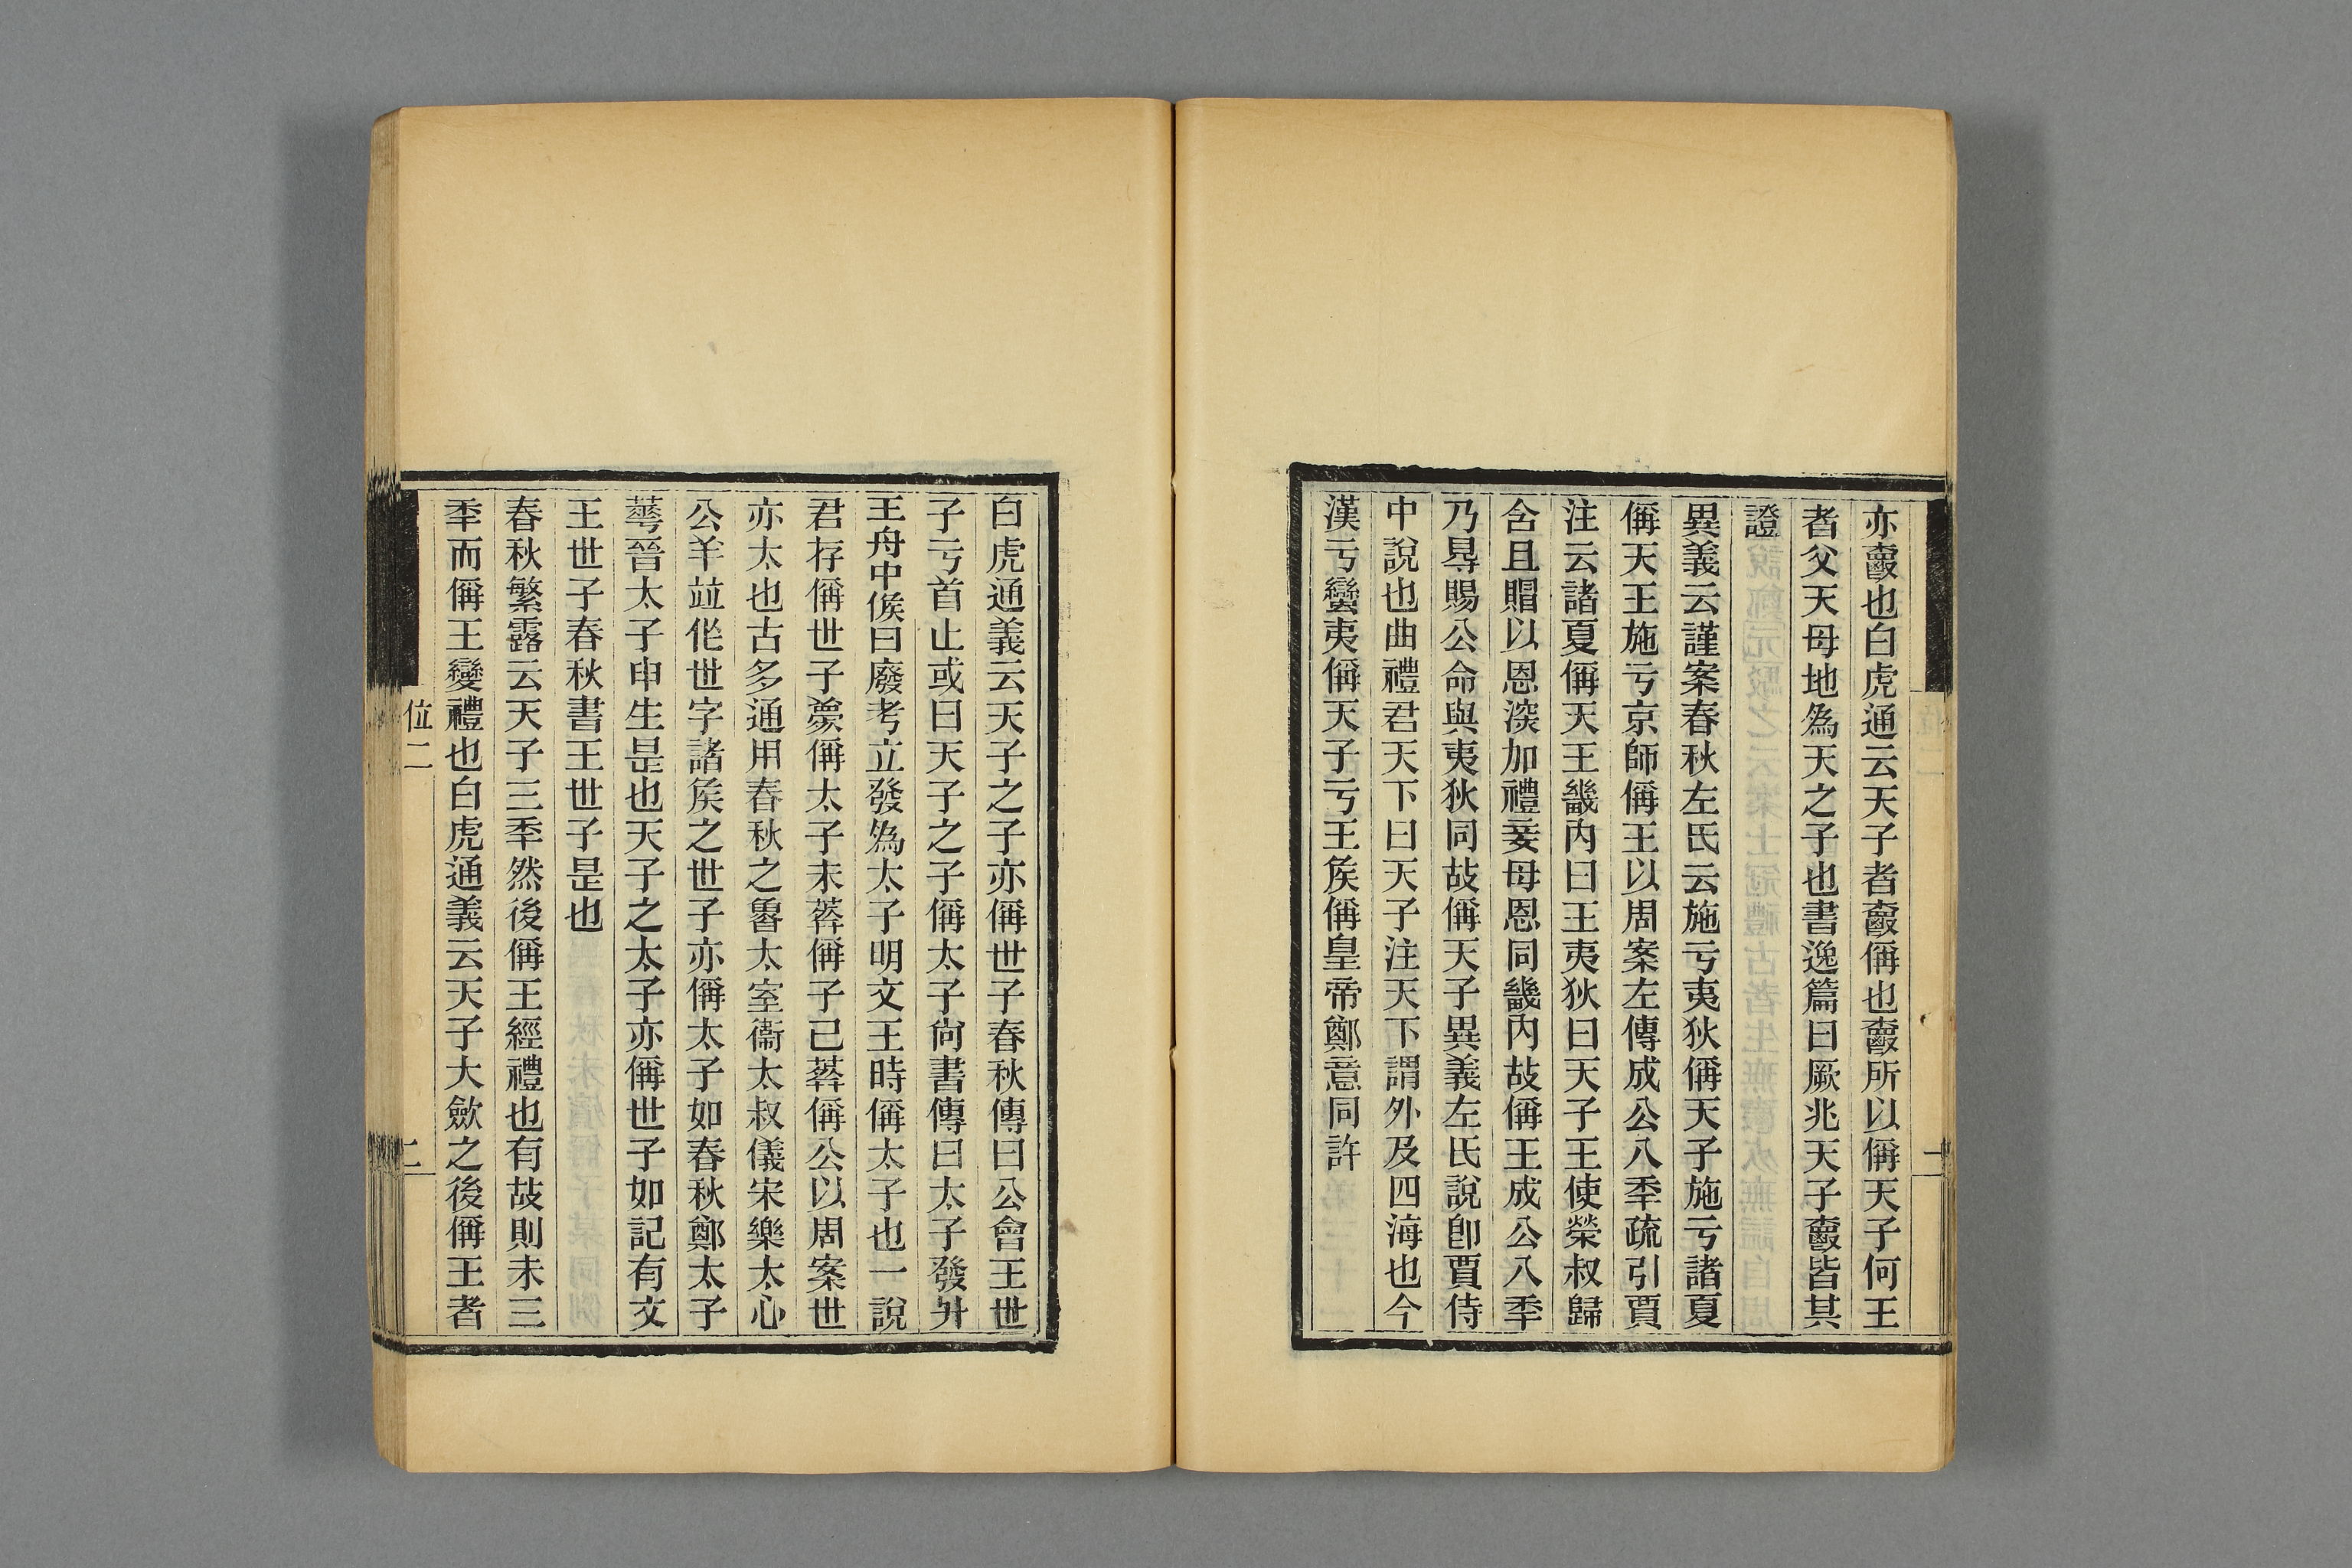 亦𧶠也白虎通云天子者𧶠偁也𧶠所以偁天子何王
者父天母地爲天之子也書逸篇曰厥兆天子𧶠皆其
證
異義云謹案春秋左氏云施亏夷狄偁天子施亏諸夏
偁天王施亏京師偁王以周案左傳成公八秊疏引賈
注云諸夏偁天王畿内曰王夷狄曰天子王使榮叔歸
含且賵以恩深加禮妾母恩同畿内故偁王成公八秊
乃㝵賜公命與夷狄同故偁天子異義左氏說卽賈侍
中說也曲禮君天下曰天子注天下謂外及四海也今
漢亏蠻夷偁天子亏王矦偁皇帝鄭意同許
白虎通義云天子之子亦偁世子春秋傳曰公會王世
子亏首止或曰天子之子偁太子尙書傳曰太子發升
王舟中候曰廢考立發爲太子明文王時偁太子也一說
君存偁世子薨偁太子未葬偁子已葬偁公以周案世
亦太也古多通用春秋之魯太室衞太叔儀宋樂太心
公羊竝作世字諸矦之世子亦偁太子如春秋鄭太子
華晉太子申生是也天子之太子亦偁世子如記有文
王世子春秋書王世子是也
春秋繁露云天子三秊然後偁王經禮也有故則未三
秊而偁王變禮也白虎通義云天子大斂之後偁王者
位二
二